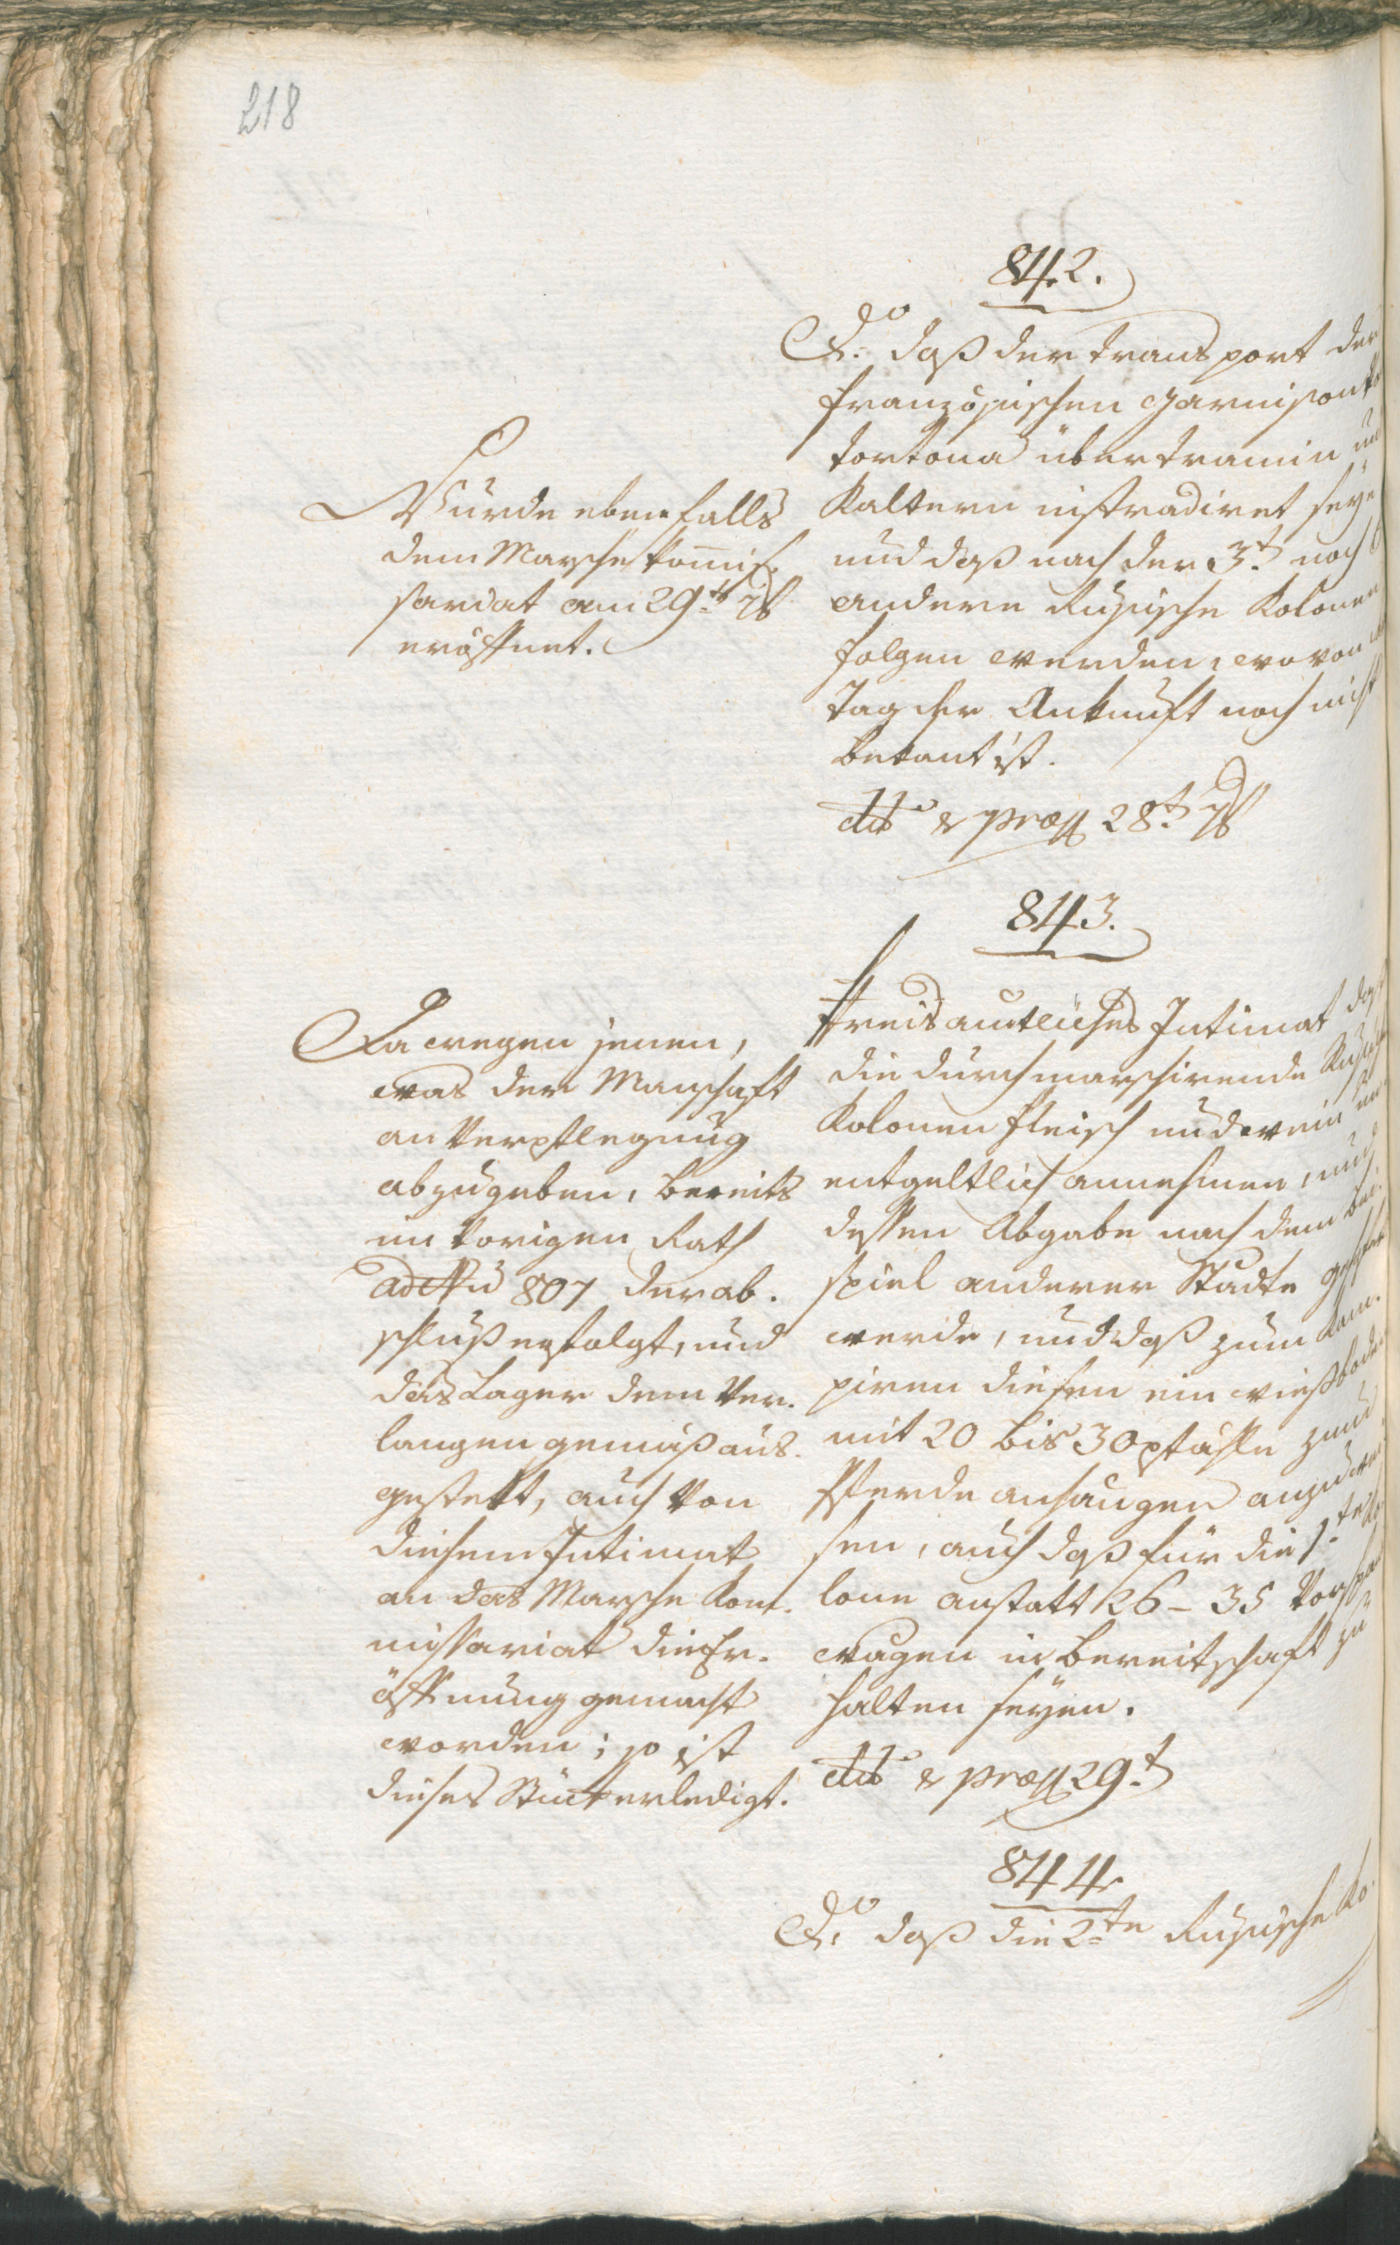 218
842.
Do. daß der transport der
französischen Garnison
tortona über tramin und
Kaltern instradiret seye
und daß nach der 3t. noch
andere Rußische Kolonen
folgen werden, wovon
Tag der Ankunft noch nicht
bekant ist.
dto & præs 28t. 7b
Wurde ebenfalls
dem Marsche Komis-
sariat am 29t. 7b
eröffnet.
843.
Kreisamtliches Intimat daß
die durchmarschirende Rußische
Kolonen fleisch und wein un
entgeltlich annehmen, und
dessen Abgabe nach dem bei-
spiel anderer Städte
werde, und daß zum Kam-
piren diesen ein wießboden
mit 20 bis 30 pfähle zum
Pferde anhangen anzuwei
sen, auch daß für die 1.te Ko
lone anstatt 26 – 35 Vorspan
wagen in bereitschaft zu
halten seyen.
dto & præs 29t.
Da wegen jenen,
was der Manschaft
an Verpflegung
abzugeben, bereits
im vorigen Rath
ad No 807 der ab-
schluß erfolgt, und
das Lager dem Ver-
langen gemäß aus-
gestekt, auch von
diesem Intimat
an das Marsche Kom-
missariat die Er-
öffnung gemacht
worden; so ist
dieses Stück erledigt.
844
Do. daß die 2te Rußische Ko-